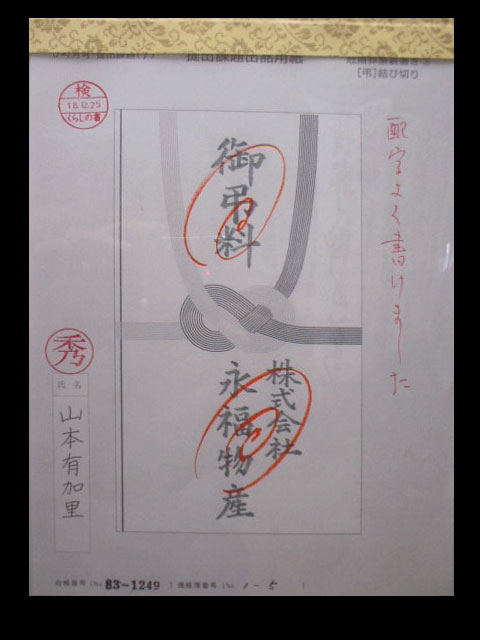 提出課題出品用紙
[弔]結び切り
検
18.12.25
くらしの書
配字よく書けました
御弔料
株式会社
永福物産
秀
氏名
山本有加里
台帳番号(No. 83-1249 ) 連絡簿番号(No. 1-5 )